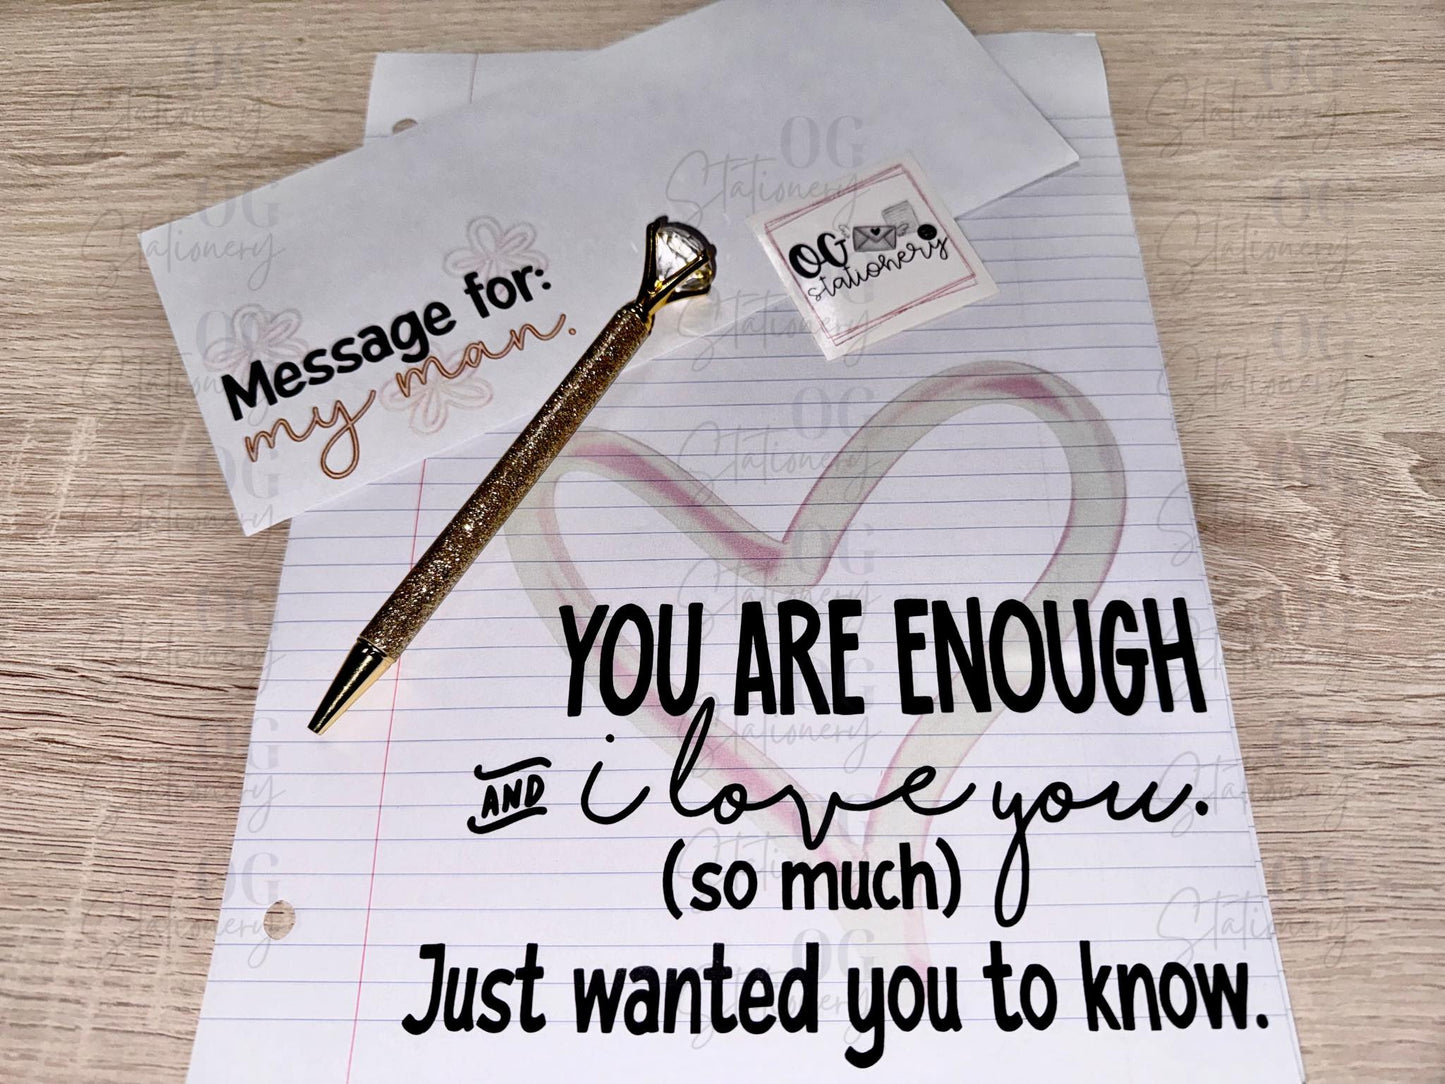 Message for:
my man.
OG
stationery
YOU ARE ENOUGH
AND i love you.
(so much)
Just wanted you to know.
OG
Stationery